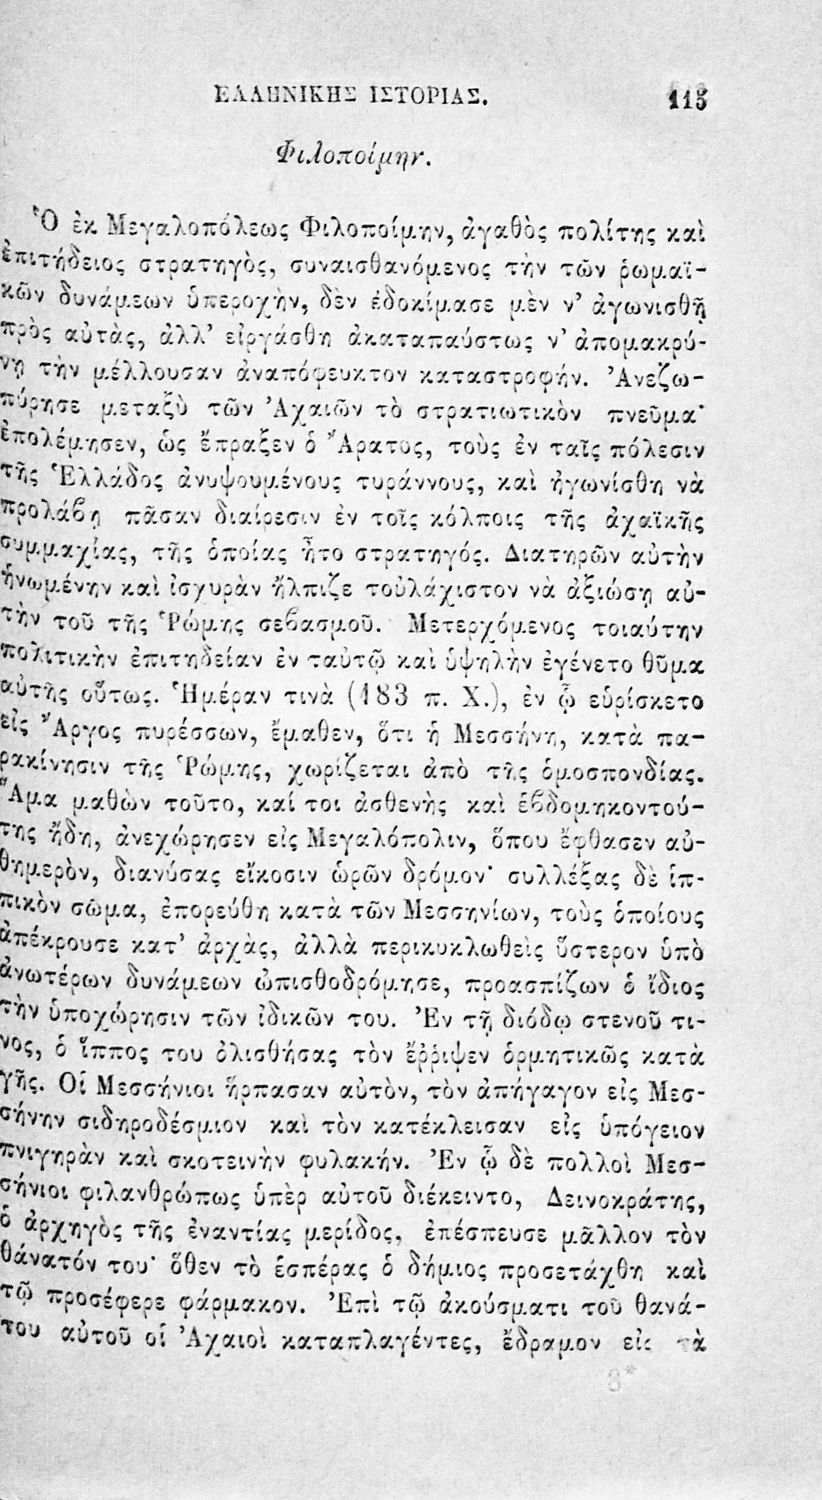 ΕΛΛΗΝΙΚΗΣ ΙΣΤΟΡΙΑΣ. 115
Φιλοποίμην.
Ὁ ἐκ Μεγαλοπόλεως Φιλοποίμην, ἀγαθὸς πολίτης καὶ
ἐπιτήδειος στρατηγὸς, συναισθανόμενος τὴν τῶν ῥωμαϊ-
κῶν δυνάμεων ὑπεροχὴν, δὲν ἐδοκίμασε μὲν ν’ ἀγωνισθῇ
πρὸς αὐτὰς, ἀλλ’ εἰργάσθη ἀκαταπαύστως ν’ ἀπομακρύ-
νῃ τὴν μέλλουσαν ἀναπόφευκτον καταστροφήν. Ἀνεζω-
πύρησε μεταξὺ τῶν Ἀχαιῶν τὸ στρατιωτικὸν πνεῦμα·
ἐπολέμησεν, ὡς ἔπραξεν ὁ Ἄρατος, τοὺς ἐν ταῖς πόλεσιν
τῆς Ἑλλάδος ἀνυψουμένους τυράννους, καὶ ἠγωνίσθη νὰ
προλάβῃ πᾶσαν διαίρεσιν ἐν τοῖς κόλποις τῆς ἀχαϊκῆς
συμμαχίας, τῆς ὁποίας ἦτο στρατηγός. Διατηρῶν αὐτὴν
ἡνωμένην καὶ ἰσχυρὰν ἤλπιζε τοὐλάχιστον νὰ ἀξιώσῃ αὐ-
τὴν τοῦ τῆς Ῥώμης σεβασμοῦ. Μετερχόμενος τοιαύτην
πολιτικὴν ἐπιτηδείαν ἐν ταὐτῷ καὶ ὑψηλὴν ἐγένετο θῦμα
αὐτῆς οὕτως. Ἡμέραν τινὰ (183 π. Χ.), ἐν ᾧ εὑρίσκετο
εἰς Ἄργος πυρέσσων, ἔμαθεν, ὅτι ἡ Μεσσήνη, κατὰ πα-
ρακίνησιν τῆς Ῥώμης, χωρίζεται ἀπὸ τῆς ὁμοσπονδίας.
Ἅμα μαθὼν τοῦτο, καί τοι ἀσθενὴς καὶ ἑβδομηκοντού-
της ἤδη, ἀνεχώρησεν εἰς Μεγαλόπολιν, ὅπου ἔφθασεν αὐ-
θημερὸν, διανύσας εἴκοσιν ὡρῶν δρόμον· συλλέξας δὲ ἱπ-
πικὸν σῶμα, ἐπορεύθη κατὰ τῶν Μεσσηνίων, τοὺς ὁποίους
ἀπέκρουσε κατ’ ἀρχὰς, ἀλλὰ περικυκλωθεὶς ὕστερον ὑπὸ
ἀνωτέρων δυνάμεων ὠπισθοδρόμησε, προασπίζων ὁ ἴδιος
τὴν ὑποχώρησιν τῶν ἰδικῶν του. Ἐν τῇ διόδῳ στενοῦ τι-
νος, ὁ ἵππος του ὀλισθήσας τὸν ἔῤῥιψεν ὁρμητικῶς κατὰ
γῆς. Οἱ Μεσσήνιοι ἥρπασαν αὐτὸν, τὸν ἀπήγαγον εἰς Μεσ-
σήνην σιδηροδέσμιον καὶ τὸν κατέκλεισαν εἰς ὑπόγειον
πνιγηρὰν καὶ σκοτεινὴν φυλακήν. Ἐν ᾧ δὲ πολλοὶ Μεσ-
σήνιοι φιλανθρώπως ὑπὲρ αὐτοῦ διέκειντο, Δεινοκράτης,
ὁ ἀρχηγὸς τῆς ἐναντίας μερίδος, ἐπέσπευσε μᾶλλον τὸν
θάνατόν του· ὅθεν τὸ ἑσπέρας ὁ δήμιος προσετάχθη καὶ
τῷ προσέφερε φάρμακον. Ἐπὶ τῷ ἀκούσματι τοῦ θανά-
του αὐτοῦ οἱ Ἀχαιοὶ καταπλαγέντες, ἔδραμον εἰς τὰ
3*